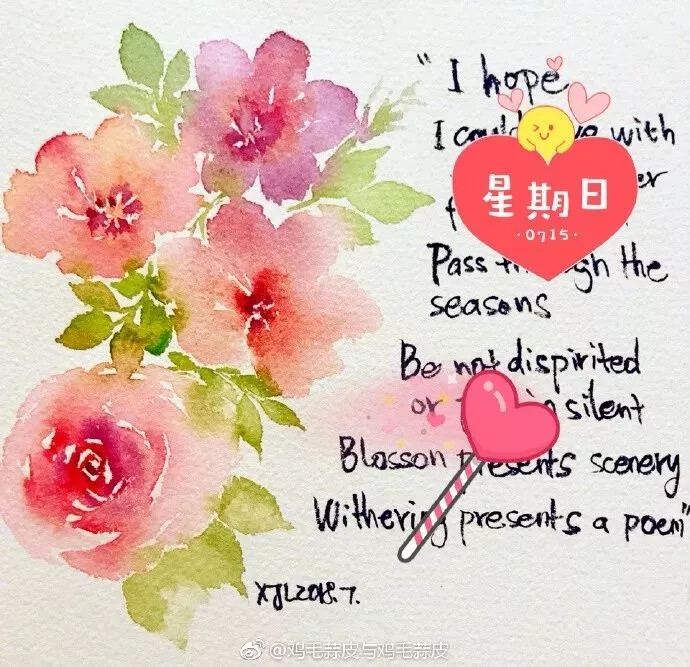 "I hope
I could with
er
Pass the
seasons
Be not dispirited
or silent
Blosson presents scenery
Withering presents a poem"
XJL2018.7.
星期日
·0715·
@鸡毛蒜皮与鸡毛蒜皮